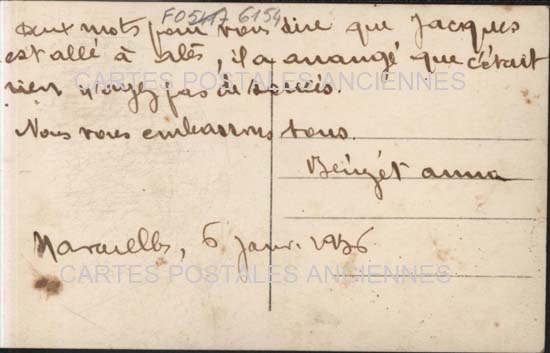 F05417 6154
Deux mots pour vous dire que Jacques
est allé à alès, il a arrangé que c'était
rien n'ayez pas de soucis.
CARTES POSTALES ANCIENNES
Nous vous embrassons tous.
anna
Marseille, 6 janv. 1936
CARTES POSTALES ANCIENNES